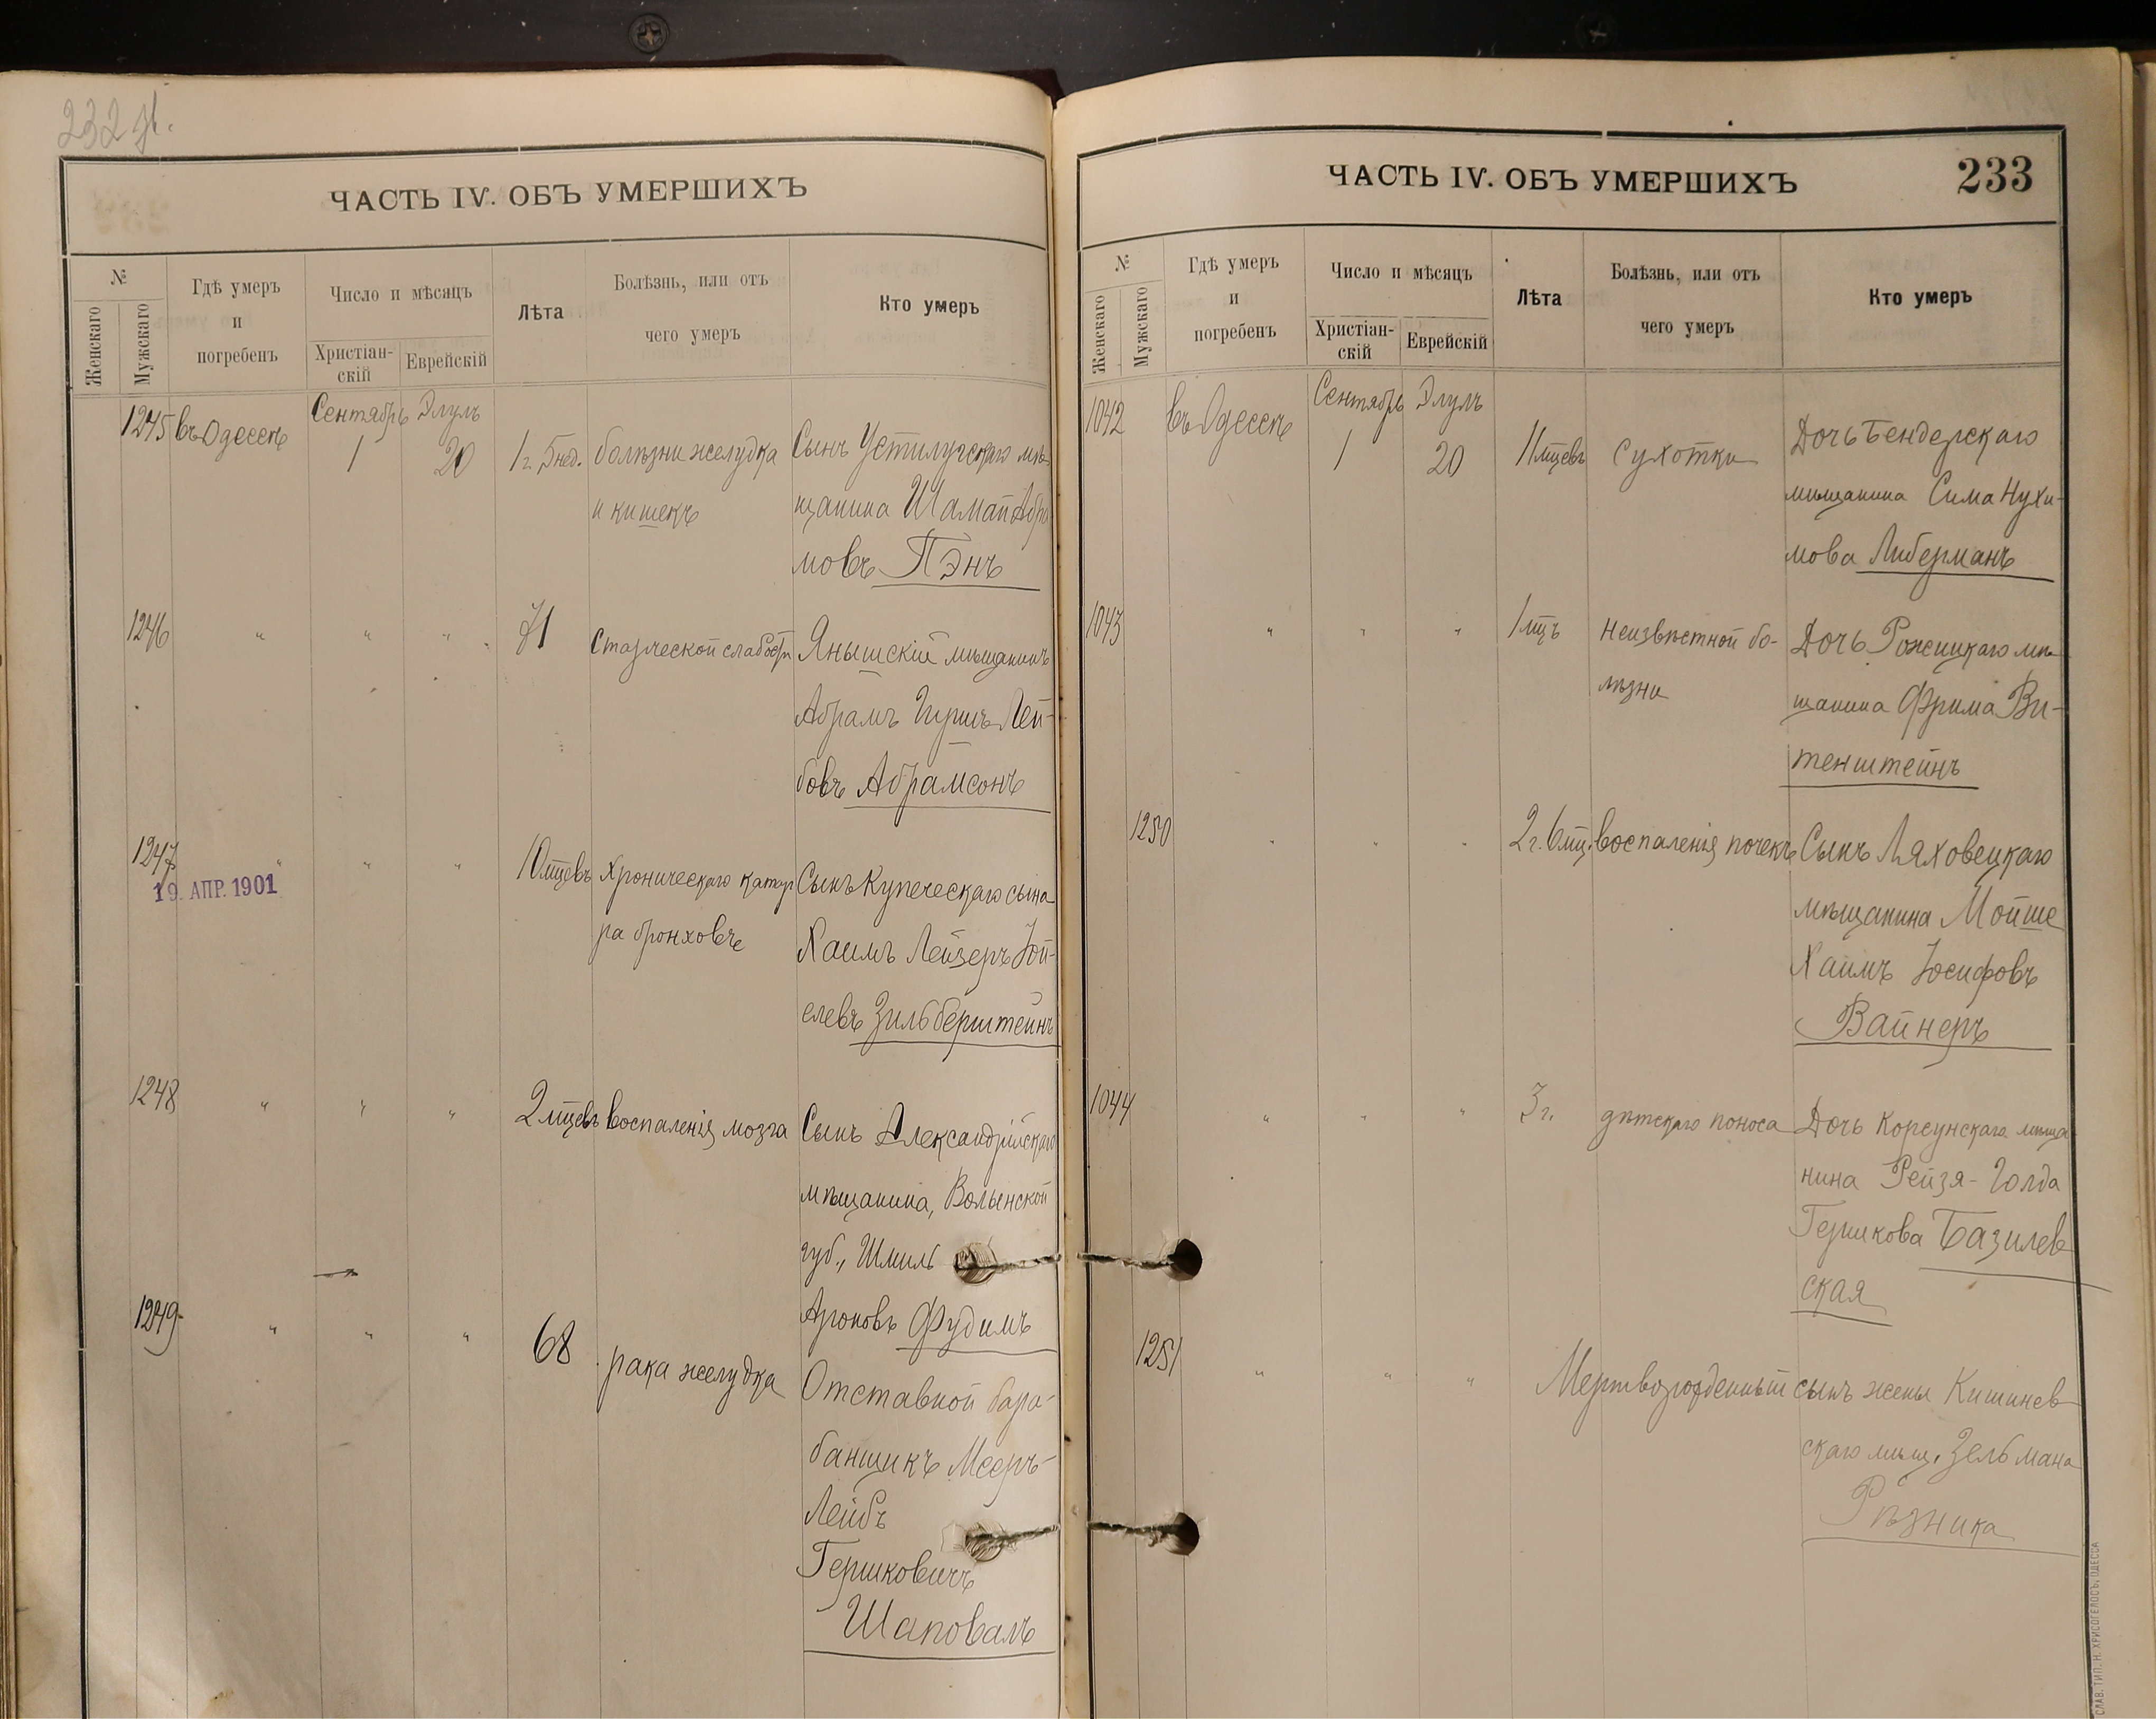 232 об.
ЧАСТЬ IV. ОБЪ УМЕРШИХЪ
№
Женскаго
Мужскаго
Гдѣ умеръ
и
погребенъ
Число и мѣсяцъ
Христіан-
скій
Еврейскій
Лѣта
Болѣзнь, или отъ
чего умеръ
Кто умеръ
1245 въ Одессѣ Сентябрь 1 Элулъ 20 1 г. 5 нед. болѣзни желудка Сынъ Устилугскаго мѣ-
и кишекъ щанина Шамай Абра
мовъ Пэнъ
1246 " " " 71 Старческой слабости Янышскій мѣщанинъ
Абрамъ Гиршъ Лей-
бовъ Абрамсонъ
1247 " " " 10 мцевъ Хроническаго катар Сынъ Купеческаго сына
19. АПР. 1901
ра бронховъ Хаимъ Лейзеръ Іой-
елевъ Зильберштейнъ
1248 " " " 2 мцевъ воспаленія мозга Сынъ Александрійскаго
мѣщанина, Волынской
губ., Шмиль
Ароновъ Фудимъ
1249 " " " 68 рака желудка Отставной бара-
банщикъ Мееръ-
Лейбъ
Гершковичъ
Шаповалъ
ЧАСТЬ IV. ОБЪ УМЕРШИХЪ 233
№
Женскаго
Мужскаго
Гдѣ умеръ
и
погребенъ
Число и мѣсяцъ
Христіан-
скій
Еврейскій
Лѣта
Болѣзнь, или отъ
чего умеръ
Кто умеръ
1042 въ Одессѣ Сентябрь 1 Элулъ 20 11 мцевъ Сухотки Дочь Бендерскаго
мѣщанина Сима Нухи-
мова Либерманъ
1043 " " " 1 мцъ Неизвѣстной бо- Дочь Рожищкаго мѣ
лѣзни щанина Фрима Ви-
тенштейнъ
1250 " " " 2 г. 6 мц. воспаленія почекъ Сынъ Ляховецкаго
мѣщанина Мойше
Хаимъ Іосифовъ
Вайнеръ
1044 " " " 3 г. дѣтскаго поноса Дочь Корсунскаго мѣща
нина Рейзя-Голда
Гершкова Базилев
ская
1251 " " " Мертворожденный сынъ жены Кишинев
скаго мѣщ. Зельмана
Рѣзника
СЛАВ. ТИП. Н. ХРИСОГЕЛОСЪ, ОДЕССА